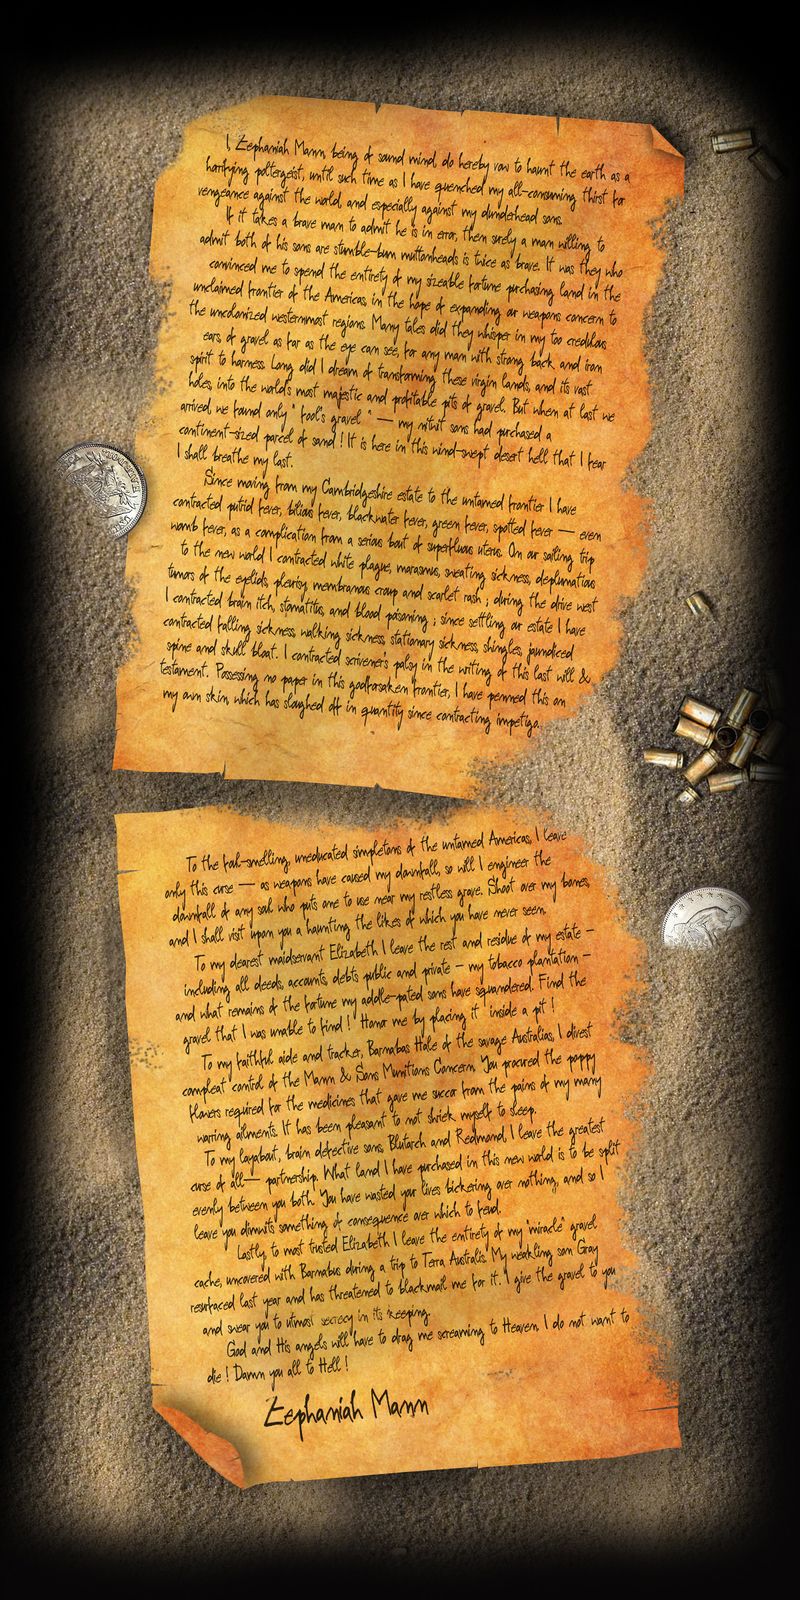 I, Zephaniah Mann, being of sound mind, do hereby vow to haunt the earth as a
horrifying poltergeist, until such time as I have quenched my all-consuming thirst for
vengeance against the world, and especially against my dunderhead sons.
If it takes a brave man to admit he is in error, then surely a man willing to
admit both of his sons are stumble-bum muttonheads is twice as brave. It was they who
convinced me to spend the entirety of my sizeable fortune purchasing land in the
unclaimed frontier of the Americas, in the hope of expanding our weapons concern to
the uncolonized westernmost regions. Many tales did they whisper in my too credulous
ears of gravel as far as the eye can see, for any man with strong back and iron
spirit to harness. Long did I dream of transforming these virgin lands, and its vast
holes, into the world's most majestic and profitable pits of gravel. But when at last we
arrived, we found only "fool's gravel" — my nitwit sons had purchased a
continent-sized parcel of sand! It is here in this wind-swept desert hell that I fear
I shall breathe my last.
Since moving from my Cambridgeshire estate to the untamed frontier I have
contracted putrid fever, bilious fever, blackwater fever, green fever, spotted fever — even
womb fever, as a complication from a serious bout of superfluous uterus. On our sailing trip
to the new world I contracted white plague, marasmus, sweating sickness, deplumatious
tumors of the eyelids, pleurisy, membranous croup and scarlet rash; during the drive west
I contracted brain itch, stomatitus, and blood poisoning; since settling our estate I have
contracted falling sickness, walking sickness, stationary sickness, shingles, jaundiced
spine and skull bloat. I contracted scrivener's palsy in the writing of this last will &
testament. Possessing no paper in this godforsaken frontier, I have penned this on
my own skin, which has sloughed off in quantity since contracting impetigo.
To the foul-smelling, uneducated simpletons of the untamed Americas, I leave
only this curse — as weapons have caused my downfall, so will I engineer the
downfall of any soul who puts one to use near my restless grave. Shoot over my bones,
and I shall visit upon you a haunting the likes of which you have never seen.
To my dearest maidservant Elizabeth I leave the rest and residue of my estate -
including all deeds, accounts, debts public and private - my tobacco plantation -
and what remains of the fortune my addle-pated sons have squandered. Find the
gravel that I was unable to find! Honor me by placing it inside a pit!
To my faithful aide and tracker, Barnabas Hale of the savage Australias, I divest
compleat control of the Mann & Sons Munitions Concern. You procured the poppy
flowers required for the medicines that gave me succor from the pains of my many
warring ailments. It has been pleasant to not shriek myself to sleep.
To my layabout, brain defective sons, Blutarch and Redmond, I leave the greatest
curse of all— partnership. What land I have purchased in this new world is to be split
evenly between you both. You have wasted your lives bickering over nothing, and so I
leave you dimwits something of consequence over which to feud.
Lastly, to most trusted Elizabeth I leave the entirety of my "miracle" gravel
cache, uncovered with Barnabus during a trip to Terra Australis. My weakling son Gray
resurfaced last year and has threatened to blackmail me for it. I give the gravel to you
and swear you to utmost secrecy in its keeping.
God and His angels will have to drag me screaming to Heaven. I do not want to
die! Damn you all to Hell!
Zephaniah Mann